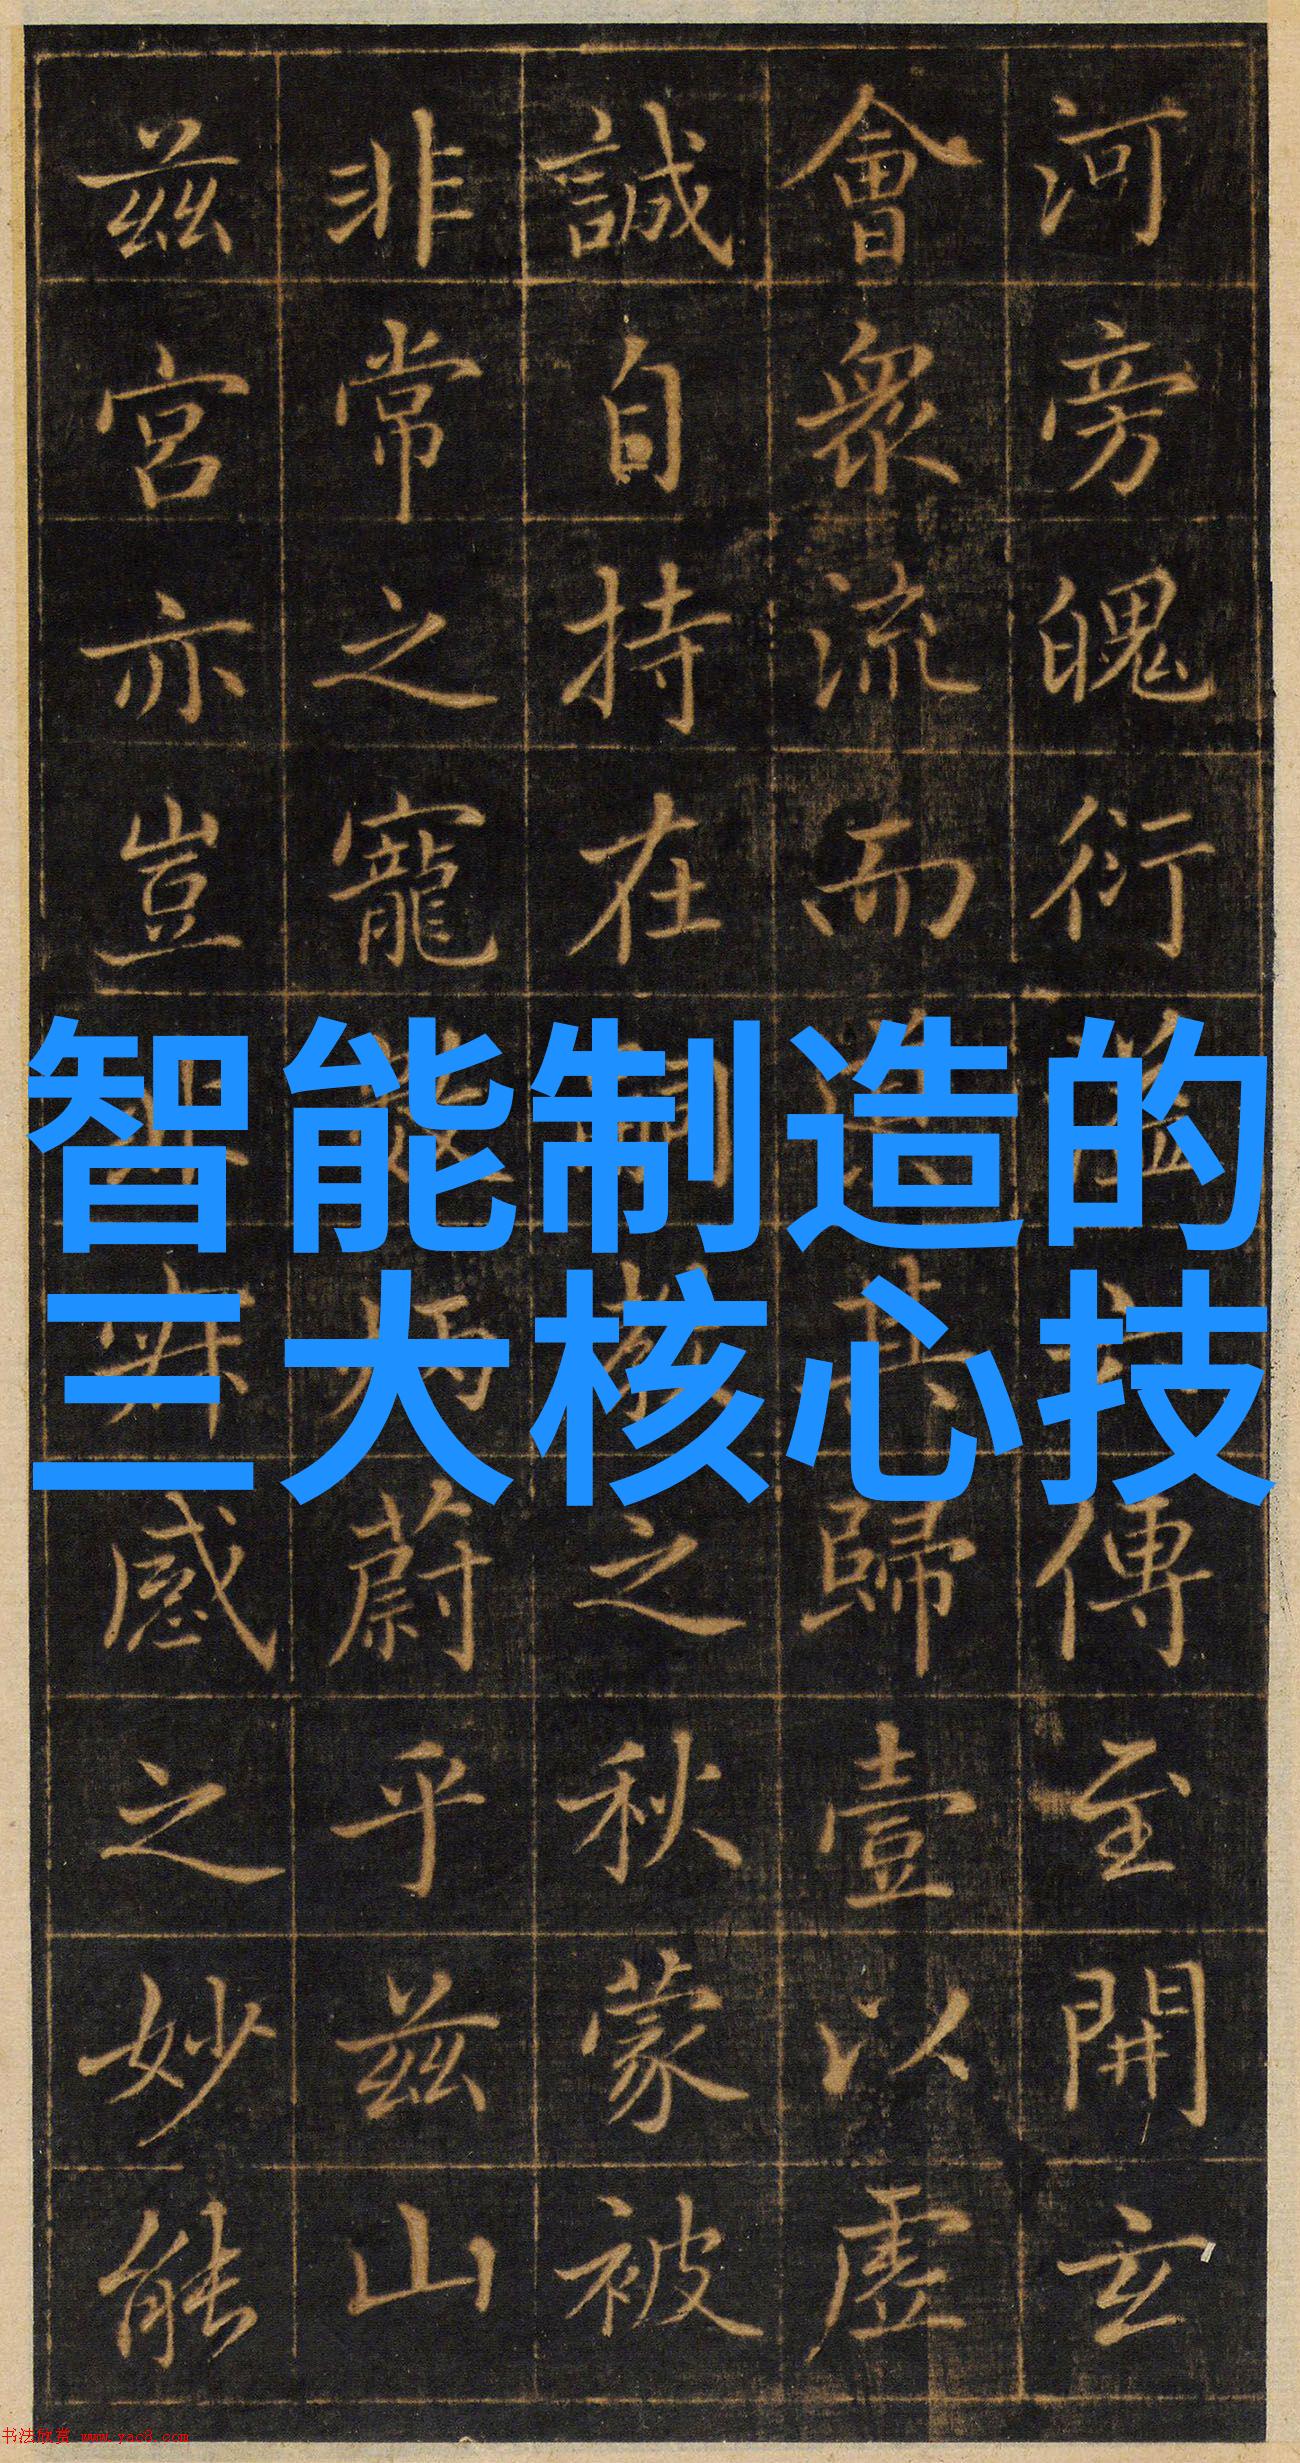 河旁魄衍傳至開玄
會衆流而其歸壹以虛
誠自持在之秋蒙被
非常之寵蔚乎茲山
茲宮亦豈感之妙能
智能制造的
三大核心技
书法欣赏 www.yac8.com